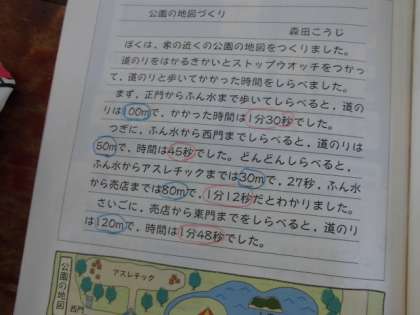 公園の地図づくり
森田こうじ
ぼくは，家の近くの公園の地図をつくりました。
道のりをはかるきかいとストップウオッチをつかっ
て，道のりと歩いてかかった時間をしらべました。
まず，正門からふん水まで歩いてしらべると，道の
りは100mで，かかった時間は1分30秒でした。
つぎに，ふん水から西門までしらべると，道のりは
50mで，時間は45秒でした。どんどんしらべると，
ふん水からアスレチックまでは30mで，27秒，ふん水
から売店までは80mで，1分12秒だとわかりました。
さいごに，売店から東門までをしらべると，道のり
は120mで，時間は1分48秒でした。
公園の地図
アスレチック
西門